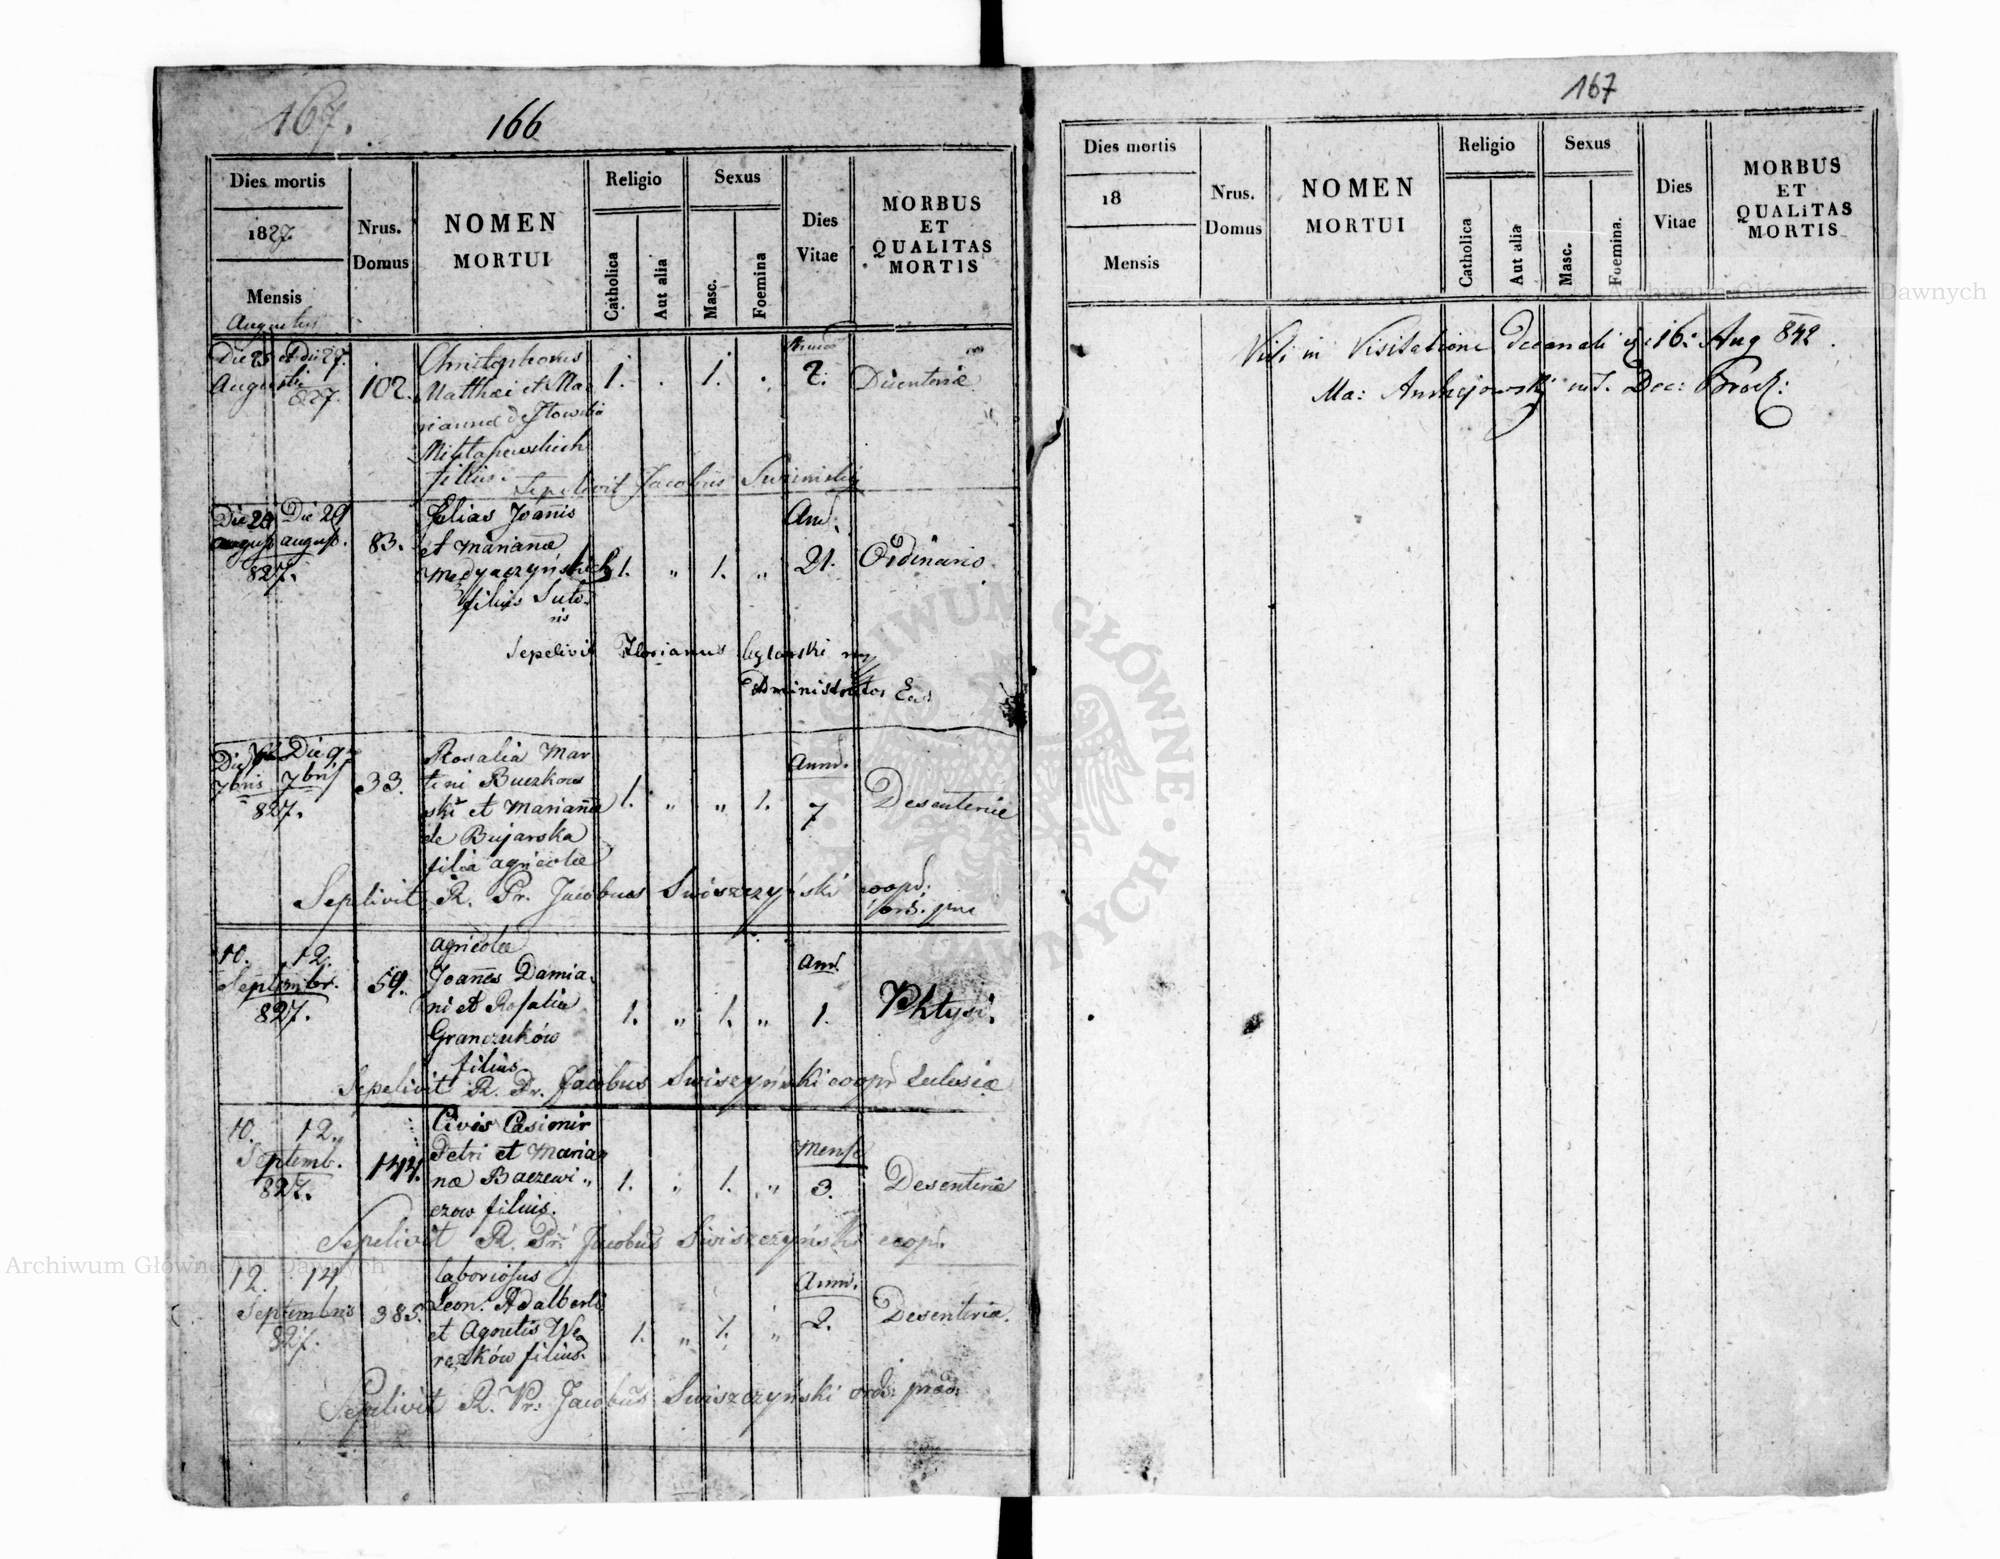 167.
166
Dies mortis
1827.
Mensis
Augustus
Nrus.
Domus
NOMEN
MORTUI
Religio
Catholica
Aut alia
Sexus
Masc.
Foemina
Dies
Vitae
MORBUS
ET
QUALITAS
MORTIS
Die 25 et die 27.
Augusti
827.
102.
Christophorus
Matthaei et Ma
rianna de
filius.
1. . 1. .
2.
Disenteriæ
Sepelivit Jacobus
Die 29 Die 29
august.
827.
83.
Elias Joañis
et Marianæ
filius Suto
ris
1. „ 1. „
Añ.
21.
Ordinario.
Sepelivit Florianus
Administrator Ecc:
Die Die 9
7bris 7bris
827.
33.
Rosalia Mar
tini Buczkow
ski et Mariañæ
de Bujarska
filia agricolæ
1. „ „ 1.
Anni.
7
Desenteriæ
Sepelivit R. Pr. Jacobus Swiszczyński coop.
10. 12.
Septembr.
827.
59.
agricolæ
Joañes Damia
ni et Rosaliæ
Granczuków
filius
1. „ 1. „
Añ.
1.
Phtysi.
Sepelivit R. Pr. Jacobus Swiszczyński coop Eclesiæ
10. 12.
Septemb.
827.
144.
Civis Casimir
Petri et Maria
næ Baczewi „
czow filius.
1. „ 1. „
Mens.
3.
Desenteriæ
Sepelivit R. Pr: Jacobus Swiszczyński coop.
12. 14
Septembris
827.
385.
laboriosus
Leon. Adalberti
et Agnetis We
reszków filius.
1. „ 1. „
Anni.
2.
Desenteria.
Sepelivit R. Pr: Jacobus Swiszczyński ord: præd:
167
Dies mortis
18
Mensis
Nrus.
Domus
NOMEN
MORTUI
Religio
Catholica
Aut alia
Sexus
Masc.
Foemina.
Dies
Vitae
MORBUS
ET
QUALITAS
MORTIS
Visi in Visitatione Decanali 16: Aug 842.
Ma: Andrzejowski Dec: Brock:
Archiwum Główne Akt Dawnych
ARCHIWUM GŁÓWNE AKT DAWNYCH
Archiwum Główne Akt Dawnych